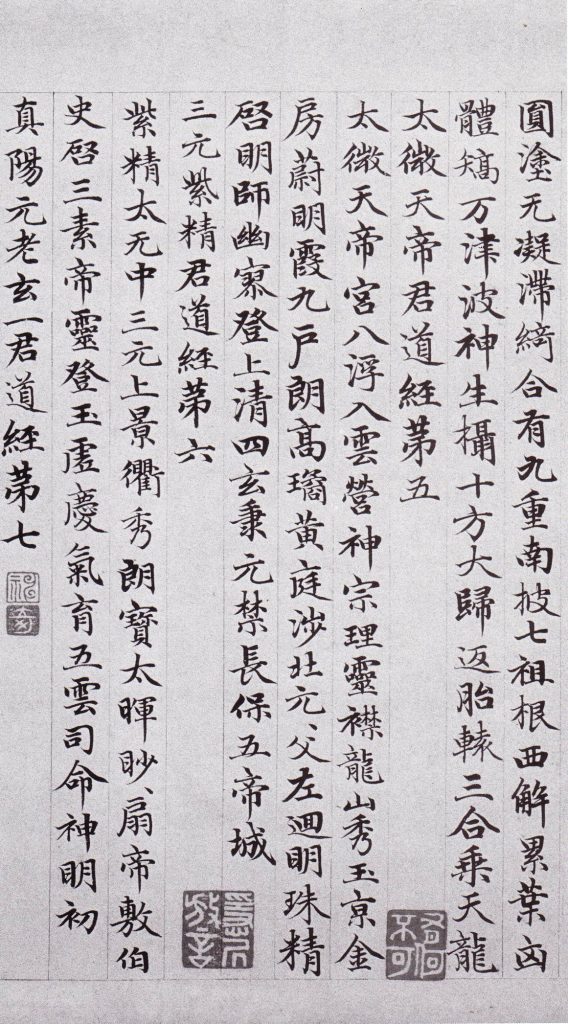 圓塗无凝滯綺合有九重南披七祖根西解累葉凶
體矯万津波神生攝十方大歸返胎轅三合乘天龍
太微天帝君道經第五
太微天帝宮八浮入雲營神宗理靈襟龍山秀玉京金
房蔚明霞九戶朗高璚黃庭涉北元父左迴明珠精
啓明師幽寮登上清四玄秉元禁長保五帝城
三元紫精君道經第六
紫精太无中三元上景衢秀朗寶太暉眇扇帝敷伯
史啓三素帝靈登玉虛慶氣育五雲司命神明初
真陽元老玄一君道經第七